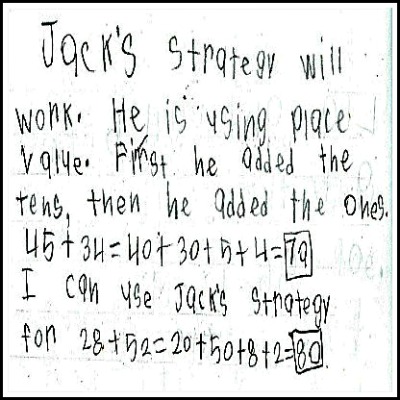 Jack's strategy will
work. He is using place
value. First he added the
tens, then he added the ones.
45+34=40+30+5+4=79
I can use Jack's strategy
for 28+52=20+50+8+2=80